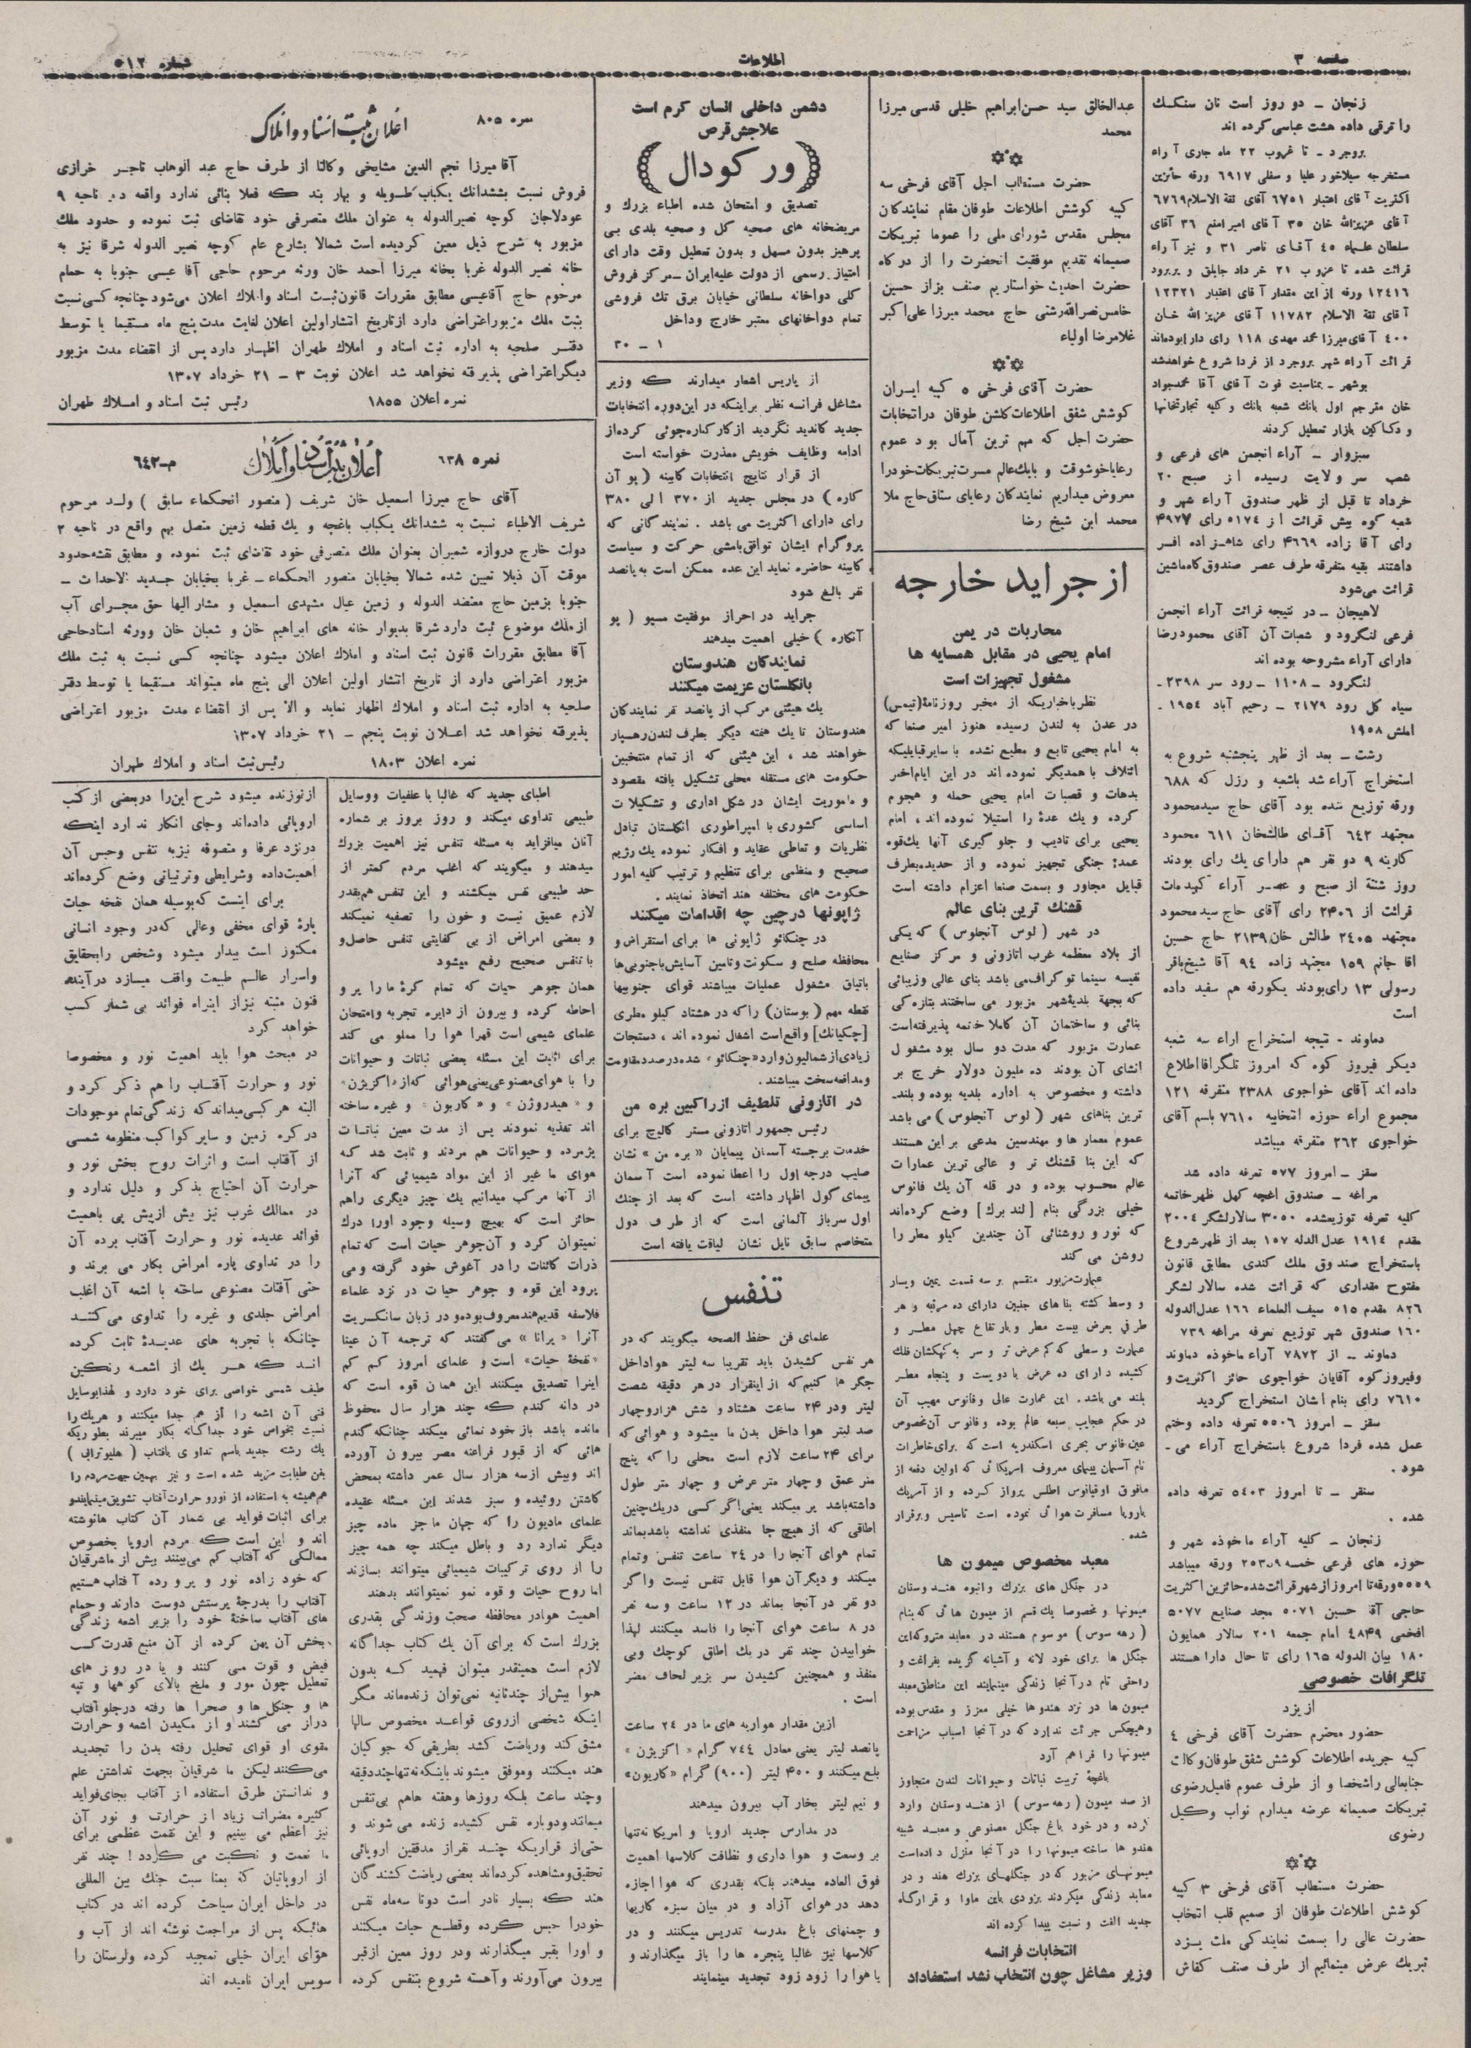 صفحه ۳
اطلاعات
شماره ۵۱۲
زنجان – دو روز است نان سنگک
را ترقی داده هشت عباسی کرده اند
بروجرد – تا غروب ۲۲ ماه جاری آراء
مستخرجه سیلاخور علیا و سفلی ۶۹۱۷ ورقه حائزین
اکثریت آقای اعتبار ۶۷۵۱ آقای ثقة الاسلام ۶۷۶۹
آقای عزیزالله خان ۳۵ آقای امیر امنع ۳۶ آقای
سلطان علماء ۴۵ آقای ناصر ۳۱ و نیز آراء
قرائت شده تا غروب ۲۱ خرداد جاپلق و بربرود
۱۲۴۱۶ ورقه از این مقدار آقای اعتبار ۱۲۳۲۱
آقای ثقة الاسلام ۱۱۷۸۲ آقای عزیز الله خان
۴۰۰ آقای میرزا محمد مهدی ۱۱۸ رای دارا بوده‌اند
قرائت آراء شهر بروجرد از فردا شروع خواهد شد
بوشهر – بمناسبت فوت آقای آقا محمد جواد
خان مترجم اول بانک شعبه بانک و کلیه تجارتخانها
و دکاکین بازار تعطیل کردند
سبزوار – آراء انجمن های فرعی و
شعب سر ولایت رسیده از صبح ۲۰
خرداد تا قبل از ظهر صندوق آراء شهر و
شعبه کوه بیش قرائت از ۵۱۷۴ رای ۴۹۷۷
رای آقا زاده ۴۶۶۹ رای شاهزاده افسر
داشتند بقیه متفرقه طرف عصر صندوق کاه ماشین
قرائت می‌شود
لاهیجان – در نتیجه قرائت آراء انجمن
فرعی لنگرود و شعبات آن آقای محمود رضا
دارای آراء مشروحه بوده اند
لنگرود – ۱۱۰۸ – رود سر ۲۳۹۸ –
سیاه کل رود ۲۱۷۹ – رحیم آباد ۱۹۵۴ .
املش ۱۹۵۸
رشت – بعد از ظهر پنجشنبه شروع به
استخراج آراء شد باشعبه و رزل که ۶۸۸
ورقه توزیع شده بود آقای حاج سید محمود
مجتهد ۶۴۲ آقای طالشخان ۶۱۱ محمود
کارینه ۹ دو نفر هم دارای یک رای بودند
روز شنبه از صبح و عصر آراء کهدمات
قرائت از ۲۴۰۶ رای آقای حاج سید محمود
مجتهد ۲۴۰۵ طالش خان ۲۱۳۹ حاج حسین
اقا جانم ۱۵۹ مجتهد زاده ۹۴ آقا شیخ باقر
رسولی ۱۳ رای بودند یکورقه هم سفید داده
است
دماوند – نتیجه استخراج اراء سه شعبه
دیگر فیروز کوه که امروز تلگرافا اطلاع
داده اند آقای خواجوی ۲۳۸۸ متفرقه ۱۲۱
مجموع اراء حوزه انتخابیه ۷۶۱۰ باسم آقای
خواجوی ۲۶۲ متفرقه میباشد
سقز – امروز ۵۷۷ تعرفه داده شد
مراغه – صندوق اغچه کهل ظهر خاتمه
کلیه تعرفه توزیع شده ۳۰۵۰ سالار لشگر ۲۰۰۴
مقدم ۱۹۱۴ عدل الدله ۱۵۷ بعد از ظهر شروع
باستخراج صندوق ملک کندی مطابق قانون
مفتوح مقداری که قرائت شده سالار لشگر
۸۲۶ مقدم ۵۱۵ سیف العلماء ۱۶۶ عدل الدوله
۱۶۰ صندوق شهر توزیع تعرفه مراغه ۷۳۹
دماوند – از ۷۸۷۲ آراء ماخوذه دماوند
وفیروزکوه آقایان خواجوی حائز اکثریت و
۷۶۱۰ رای بنام ایشان استخراج گردید
سقز – امروز ۵۵۰۶ تعرفه داده وختم
عمل شده فردا شروع باستخراج آراء می –
شود .
سنقر – تا امروز ۵۴۰۳ تعرفه داده
شده .
زنجان – کلیه آراء ماخوذه شهر و
حوزه های فرعی خمسه ۲۵۳۰۹ ورقه میباشد
۵۵۵۹ ورقه تا امروز از شهر قرائت شده حائزین اکثریت
حاجی آقا حسین ۵۰۷۱ مجد صنایع ۵۰۷۷
افخمی ۴۸۴۹ امام جمعه ۲۰۱ سالار همایون
۱۸۰ بیان الدوله ۱۶۵ رای تا حال دارا هستند
تلگرافات خصوصی
از یزد
حضور محترم حضرت آقای فرخی ۴
کپیه جریده اطلاعات کوشش شفق طوفان وکالت
جنابعالی را شخصا و از طرف عموم فامیل رضوی
تبریکات صمیمانه عرضه میدارم نواب وکیل
رضوی
حضرت مستطاب آقای فرخی ۳ کپیه
کوشش اطلاعات طوفان از صمیم قلب انتخاب
حضرت عالی را بسمت نمایندگی ملت یزد
تبریک عرض مینمائیم از طرف صنف کفاش
عبدالخالق سید حسن ابراهیم خلیلی قدسی میرزا
محمد
حضرت مستطاب اجل آقای فرخی سه
کپیه کوشش اطلاعات طوفان مقام نمایندگان
مجلس مقدس شورای ملی را عموما تبریکات
صمیمانه تقدیم موفقیت انحضرت را از درگاه
حضرت احدیت خواستاریم صنف بزاز حسین
خامس نصرالله رشتی حاج محمد میرزا علی اکبر
غلامرضا اولیاء
حضرت آقای فرخی ۵ کپیه ایران
کوشش شفق اطلاعات گلشن طوفان در انتخابات
حضرت اجل که مهم ترین آمال بود عموم
رعایا خوشوقت و بایک عالم مسرت تبریکات خود را
معروض میداریم نمایندگان رعایای ستاق حاج ملا
محمد ابن شیخ رضا
از جراید خارجه
محاربات در یمن
امام یحیی در مقابل همسایه ها
مشغول تجهیزات است
نظر باخباریکه از مخبر روزنامهٔ (تیمس)
در عدن به لندن رسیده هنوز امیر صنعا که
به امام یحیی تابع و مطیع نشده با سایر قبایلیکه
ائتلاف با همدیگر نموده اند در این ایام اخیر
بدهات و قصبات امام یحیی حمله و هجوم
کرده و یک عدهٔ را استیلا نموده اند ، امام
یحیی برای تادیب و جلو گیری آنها یک قوه
عمدهٔ جنگی تجهیز نموده و از حدیده بطرف
قبایل مجاور و بسمت صنعا اعزام داشته است
قشنگ ترین بنای عالم
در شهر ( لوس آنجلوس ) که یکی
از بلاد معظمه غرب اتازونی و مرکز صنایع
نفیسه سینما توگراف می باشد بنای عالی وزیبائی
که بجهة بلدیهٔ شهر مزبور می ساختند بتازه گی
بنائی و ساختمان آن کاملا خاتمه پذیرفته است
عمارت مزبور که مدت دو سال بود مشغول
انشای آن بودند ده ملیون دولار خرج بر
داشته و مخصوص به اداره بلدیه بوده و بلند
ترین بناهای شهر ( لوس آنجلوس ) می باشد
عموم معمار ها و مهندسین مدعی بر این هستند
که این بنا قشنگ تر و عالی ترین عمارات
عالم محسوب بوده و در قله آن یک فانوس
خیلی بزرگی بنام [ لند برک ] وضع کرده‌اند
که نور و روشنائی آن چندین کیلو مطر را
روشن می کند
عمارت مزبور منقسم بر سه قسمت یمین ویسار
و وسط گشته بنا های جنبین دارای ده مرتبه و هر
طرفی بعرض بیست مطر و بارتفاع چهل مطر و
عمارت وسطی که کم عرض تر و سر به کهکشان فلک
کشیده دارای ده عرض با دویست و پنجاه مطر
بلند می باشد . این عمارت عالی وفانوس مهیب آن
در حکم عجایب سبعه عالم بوده و فانوس آن مخصوص
عین فانوس بحری اسکندریه است که برای خاطرات
نام آسمان پیمای معروف امریکائی که اولین دفعه از
مافوق اوقیانوس اطلس پرواز کرده و از آمریک
باروپا مسافرت هوائی نموده است تاسیس وبرقرار
شده .
معبد مخصوص میمون ها
در جنگل های بزرگ وانبوه هندوستان
میمونها و مخصوصا یک قسم از میمون هائی که بنام
( رهه سوس ) موسوم هستند در معابد متروکه این
جنگل ها برای خود لانه و آشیانه گزیده بفراغت و
راحتی تام در آنجا زندگی مینمایند این مناطق معبد
میمون ها در نزد هندوها خیلی معزز و مقدس بوده
وهیچکس جرئت ندارد که در آنجا اسباب مزاحمت
میمونها را فراهم آرد
باغچهٔ تربیت نباتات و حیوانات لندن متجاوز
از صد میمون ( رهه سوس ) از هندوستان وارد
کرده و در خود باغ جنگل مصنوعی و معبد شبیه
هندوها ساخته میمونها را در آنجا منزل داده‌است
میمونهای مزبور که در جنگلهای بزرگ هند و در
معابد زندگی میکردند بزودی باین ماوا و قرارگاه
جدید الفت و نسبت پیدا کرده اند
انتخابات فرانسه
وزیر مشاغل چون انتخاب نشد استعفا داد
دشمن داخلی انسان کرم است
علاجش قرص
(ورکودال)
تصدیق و امتحان شده اطباء بزرگ و
مریضخانه های صحیه کل و صحیه بلدی بی
پرهیز بدون مسهل و بدون تعطیل وقت دارای
امتیاز رسمی از دولت علیه ایران – مرکز فروش
کلی دواخانه سلطانی خیابان برق تک فروشی
تمام دواخانهای معتبر خارج و داخل
۱ – ۳۰
از پاریس اشعار میدارند که وزیر
مشاغل فرانسه نظر براینکه در این دوره انتخابات
جدید کاندید نگردید از کار کناره جوئی کرده از
ادامه وظایف خویش معذرت خواسته است
از قرار نتایج انتخابات کابینه ( پو آن
کاره ) در مجلس جدید از ۳۷۰ الی ۳۸۰
رای دارای اکثریت می باشد . نمایندگانی که
پروگرام ایشان توافق بامشی حرکت و سیاست
کابینه حاضره نماید این عده ممکن است به پانصد
نفر بالغ شود
جراید در احراز موفقیت مسیو ( پو
آنکاره ) خیلی اهمیت میدهند
نمایندگان هندوستان
بانگلستان عزیمت میکنند
یک هیئتی مرکب از پانصد نفر نمایندگان
هندوستان تا یک هفته دیگر بطرف لندن رهسپار
خواهند شد ، این هیئتی که از تمام منتخبین
حکومت های مستقله محلی تشکیل یافته مقصود
و ماموریت ایشان در شکل اداری و تشکیلات
اساسی کشوری با امپراطوری انگلستان تبادل
نظریات و تعاطی عقاید و افکار نموده یک رژیم
صحیح و منظمی برای تنظیم و ترتیب کلیه امور
حکومت های مختلفه هند اتخاذ نمایند .
ژاپونها در چین چه اقدامات میکنند
در چنکائو ژاپونی ها برای استقراض و
محافظه صلح و سکونت وتامین آسایش باجنوبی‌ها
باتفاق مشغول عملیات میباشند قوای جنوبیها
نقطه مهم ( بوستان ) را که در هشتاد کیلو مطری
[چکیانک] واقع است اشغال نموده اند ، دستجات
زیادی از شمالیون وارد «چنکائو» شده درصدد مقاومت
و مدافعه سخت میباشند .
در اتازونی تلطیف از راکبین بره من
رئیس جمهور اتازونی مستر کالیج برای
خدمت برجسته آسمان پیمایان «بره من» نشان
صلیب درجه اول را اعطا نموده است آسمان
پیمای کول اظهار داشته است که بعد از جنک
اول سرباز آلمانی است که از طرف دول
متخاصم سابق نایل نشان لیاقت یافته است
تنفس
علمای فن حفظ الصحه میگویند که در
هر نفس کشیدن باید تقریبا سه لیتر هوا داخل
جگر ها کنیم که از اینقرار در هر دقیقه شصت
لیتر ودر ۲۴ ساعت هشتاد و شش هزار وچهار
صد لیتر هوا داخل بدن ما میشود و هوائی که
برای ۲۴ ساعت لازم است محلی را که پنج
متر عمق و چهار متر عرض و چهار متر طول
داشته باشد پر میکند یعنی اگر کسی در یک چنین
اطاقی که از هیچ جا منفذی نداشته باشد بماند
تمام هوای آنجا را در ۲۴ ساعت تنفس وتمام
میکند و دیگر آن هوا قابل تنفس نیست و اگر
دو نفر در آنجا بماند در ۱۲ ساعت و سه نفر
در ۸ ساعت هوای آنجا را فاسد میکنند لهذا
خوابیدن چند نفر در یک اطاق کوچک وبی
منفذ و همچنین کشیدن سر بزیر لحاف مضر
است .
ازین مقدار هوا ریه های ما در ۲۴ ساعت
پانصد لیتر یعنی معادل ۷۴۴ گرام « اکزیژن »
بلع میکنند و ۴۵۰ لیتر (۹۰۰) گرام «کاربون»
و نیم لیتر بخار آب بیرون میدهند
در مدارس جدید اروپا و امریکا نه تنها
بر وسعت و هوا داری و نظافت کلاسها اهمیت
فوق العاده میدهند بلکه بقدری که هوا اجازه
دهد در هوای آزاد و در میان سبزه کاریها
و چمنهای باغ مدرسه تدریس میکنند و در
کلاسها نیز غالبا پنجره ها را باز میگذارند و
یا هوا را زود زود تجدید مینمایند
نمره ۸۰۵
اعلان ثبت اسناد و املاک
آقا میرزا نجم الدین مشایخی وکالتا از طرف حاج عبد الوهاب تاجر خرازی
فروش نسبت بششدانک یکباب طویله و بهار بند که فعلا بنائی ندارد واقعه در ناحیه ۹
عودلاجان کوچه نصیرالدوله به عنوان ملک متصرفی خود تقاضای ثبت نموده و حدود ملک
مزبور به شرح ذیل معین گردیده است شمالا بشارع عام کوچه نصیر الدوله شرقا نیز به
خانه نصیر الدوله غربا بخانه میرزا احمد خان ورثه مرحوم حاجی آقا عیسی جنوبا به حمام
مرحوم حاج آقاعیسی مطابق مقررات قانون ثبت اسناد واملاک اعلان می‌شود چنانچه کسی نسبت
بثبت ملک مزبور اعتراضی دارد از تاریخ انتشار اولین اعلان لغایت مدت پنج ماه مستقیما یا توسط
دفتر صلحیه به اداره ثبت اسناد و املاک طهران اظهار دارد پس از انقضاء مدت مزبور
دیگر اعتراضی پذیرفته نخواهد شد اعلان نوبت ۳ – ۲۱ خرداد ۱۳۰۷
نمره اعلان ۱۸۵۵ رئیس ثبت اسناد و املاک طهران
نمره ۶۳۸
اعلان ثبت اسناد و املاک
م–۶۴۲
آقای حاج میرزا اسمعیل خان شریف ( منصور الحکماء سابق ) ولد مرحوم
شریف الاطباء نسبت به ششدانک یکباب باغچه و یک قطعه زمین متصل بهم واقع در ناحیه ۲
دولت خارج دروازه شمیران بعنوان ملک متصرفی خود تقاضای ثبت نموده و مطابق نقشه حدود
موقت آن ذیلا تعیین شده شمالا بخیابان منصور الحکماء – غربا بخیابان جدید الاحداث –
جنوبا بزمین حاج معتضد الدوله و زمین عیال مشهدی اسمعیل و مشار الیها حق مجرای آب
از ملک موضوع ثبت دارد شرقا بدیوار خانه های ابراهیم خان و شعبان خان وورثه استاد حاجی
آقا مطابق مقررات قانون ثبت اسناد و املاک اعلان میشود چنانچه کسی نسبت به ثبت ملک
مزبور اعتراضی دارد از تاریخ انتشار اولین اعلان الی پنج ماه میتواند مستقیما یا توسط دفتر
صلحیه به اداره ثبت اسناد و املاک اظهار نماید و الا پس از انقضاء مدت مزبور اعتراضی
پذیرفته نخواهد شد اعلان نوبت پنجم – ۲۱ خرداد ۱۳۰۷
نمره اعلان ۱۸۰۳ رئیس ثبت اسناد و املاک طهران
اطبای جدید که غالبا با علفیات ووسایل
طبیعی تداوی میکند و روز بروز بر شماره
آنان میافزاید به مسئله تنفس نیز اهمیت بزرگ
میدهند و میگویند که اغلب مردم کمتر از
حد طبیعی نفس میکشند و این تنفس هم بقدر
لازم عمیق نیست و خون را تصفیه نمیکند
و بعضی امراض از بی کفایتی تنفس حاصل و
با تنفس صحیح رفع میشود
همان جوهر حیات که تمام کرهٔ ما را پر و
احاطه کرده و بیرون از دایره تجربه وامتحان
علمای شیمی است قهرا هوا را مملو می کند
برای اثابت این مسئله بعضی نباتات و حیوانات
را با هوای مصنوعی یعنی هوائی که از «اکزیژن»
و «هیدروژن» و «کاربون» و غیره ساخته
اند تغذیه نمودند پس از مدت معین نباتات
پژمرده و حیوانات هم مردند و ثابت شد که
هوای ما غیر از این مواد شیمیائی که آنرا
از آنها مرکب میدانیم یک چیز دیگری راهم
حائز است که بهیچ وسیله وجود اورا درک
نمیتوان کرد و آن جوهر حیات است که تمام
ذرات کائنات را در آغوش خود گرفته و می
پرود این قوه و جوهر حیات در نزد علماء
فلاسفه قدیم هند معروف بوده و در زبان سانکسریت
آنرا « پرانا » می‌گفتند که ترجمه آن عینا
«نفخهٔ حیات» است و علمای امروز کم کم
اینرا تصدیق میکنند این همان قوه است که
در دانه گندم که چند هزار سال محفوظ
مانده باشد باز خود نمائی میکند چنانکه گندم
هائی که از قبور فراعنه مصر بیرون آورده
اند وبیش از سه هزار سال عمر داشته بمحض
کاشتن روئیده و سبز شدند این مسئله عقیده
علمای مادیون را که جهان ما جز ماده چیز
دیگر ندارد رد و باطل میکند چه همه چیز
را از روی ترکیبات شیمیائی میتوانند بسازند
اما روح حیات و قوه نمو نمیتوانند بدهند
اهمیت هوا در محافظه صحت وزندگی بقدری
بزرگ است که برای آن یک کتاب جداگانه
لازم است همینقدر میتوان فهمید که بدون
هوا بیش از چند ثانیه نمی‌توان زنده ماند مگر
اینکه شخصی از روی قواعد مخصوص سالها
مشق کند وریاضت کشد بطریقی که جوکیان
هند میکنند وموفق میشوند باینکه نه تنها چند دقیقه
وچند ساعت بلکه روزها وهفته هاهم بی تنفس
میمانند ودوباره نفس کشیده زنده می شوند و
حتی از قراریکه چند نفر از مدققین اروپائی
تحقیق و مشاهده کرده‌اند بعضی ریاضت کشندگان
هند که بسیار نادر است دوتا سه ماه نفس
خود را حبس کرده وقطع حیات میکنند
و اورا بقبر میگذارند ودر روز معین از قبر
بیرون می‌آورند و آهسته شروع بتنفس کرده
از نو زنده میشود شرح این را در بعضی از کتب
اروپائی داده‌اند وجای انکار ندارد اینکه
در نزد عرفا و متصوفه نیز به تنفس وحبس آن
اهمیت داده وشرایطی وترتیباتی وضع کرده‌اند
برای اینست که بوسیله همان نفخه حیات
پارهٔ قوای مخفی وعالی که در وجود انسانی
مکنوز است بیدار میشود وشخص را بحقایق
واسرار عالم طبیعت واقف میسازد در آینده
فنون مثبته نیز از اینراه فوائد بی شمار کسب
خواهد کرد
در مبحث هوا باید اهمیت نور و مخصوصا
نور و حرارت آفتاب را هم ذکر کرد و
البته هر کسی میداند که زندگی تمام موجودات
در کره زمین و سایر کواکب منظومه شمسی
از آفتاب است و اثرات روح بخش نور و
حرارت آن احتیاج بذکر و دلیل ندارد و
در ممالک غرب نیز بیش از پیش پی باهمیت
فوائد عدیده نور و حرارت آفتاب برده آن
را در تداوی پاره امراض بکار می برند و
حتی آفتاب مصنوعی ساخته با اشعه آن اغلب
امراض جلدی و غیره را تداوی می‌کنند
چنانکه با تجربه های عدیدهٔ ثابت کرده
اند که هر یک از اشعه رنگین
طیف شمسی خواصی برای خود دارد و لهذا بوسایل
فنی آن اشعه را از هم جدا میکنند و هر یک را
نسبت بخواص خود جداگانه بکار میبرند بطوریکه
یک رشته جدید باسم تداوی بافتاب ( هلیوتراپی )
بفن طبابت مزید شده است و نیز بهمین جهت مردم را
هم همیشه به استفاده از نور و حرارت آفتاب تشویق مینمایند و
برای اثبات فواید بی شمار آن کتاب هانوشته
اند و این است که مردم اروپا بخصوص
ممالکی که آفتاب کم می‌بینند بیش از ما شرقیان
که خود زاده نور و پرورده آفتاب هستیم
آفتاب را بدرجهٔ پرستش دوست دارند وحمام
های آفتاب ساختهٔ خود را بزیر اشعه زندگی
بخش آن پهن کرده از آن منبع قدرت کسب
فیض و قوت می کنند و یا در روز های
تعطیل چون مور و ملخ بالای کوهها و تپه
ها و جنگل‌ها و صحرا ها رفته در جلو آفتاب
دراز می کشند و از مکیدن اشعه و حرارت
مقوی او قوای تحلیل رفته بدن را تجدید
می‌کنند لیکن ما شرقیان بجهت نداشتن علم
و ندانستن طرق استفاده از آفتاب بجای فواید
کثیره مضرات زیاد از حرارت و نور آن
نیز اعظم می بینیم و این نعمت عظمی برای
ما نعمت و نکبت می گردد ! چند نفر
از اروپائیان که بمناسبت جنک بین المللی
در داخل ایران سیاحت کرده اند در کتاب
هائیکه پس از مراجعت نوشته اند از آب و
هوای ایران خیلی تمجید کرده ولرستان را
سویس ایران نامیده اند